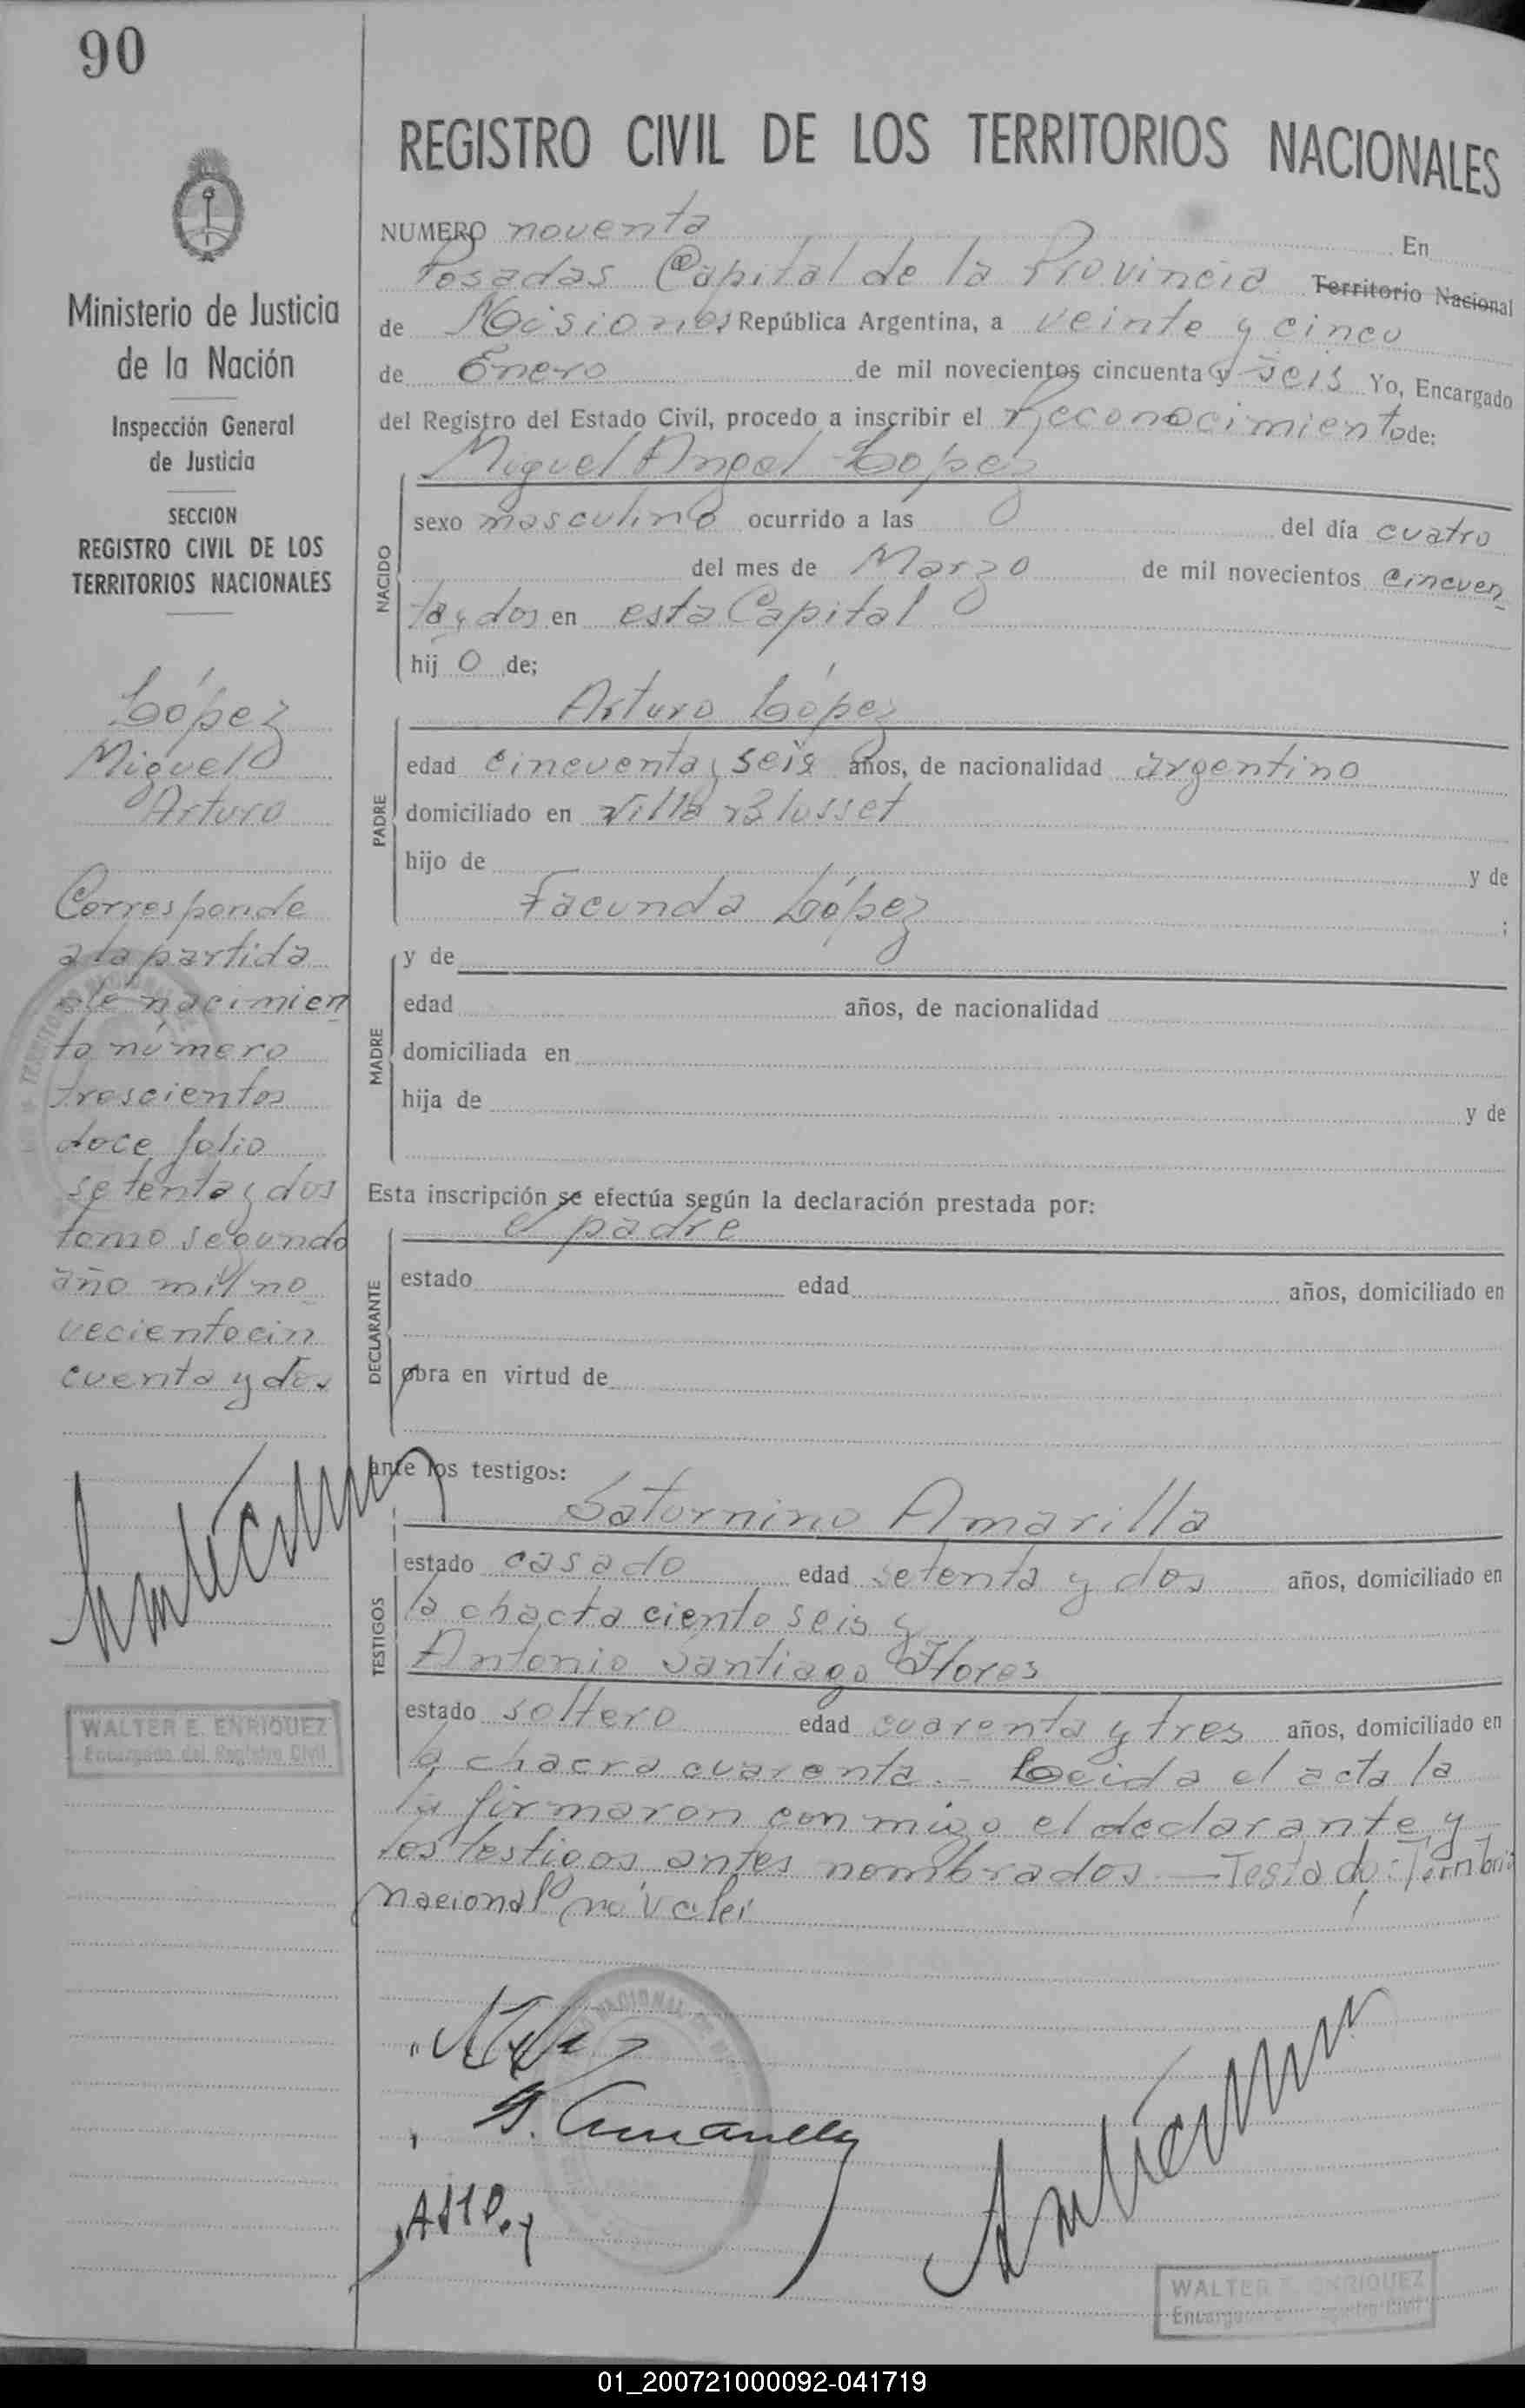 90
REGISTRO CIVIL DE LOS TERRITORIOS NACIONALES
Ministerio de Justicia
de la Nación
Inspección General
de Justicia
SECCION
REGISTRO CIVIL DE LOS
TERRITORIOS NACIONALES
López
Miguel
Arturo
Corresponde
a la partida
de nacimien
to número
trescientos
doce folio
setenta y dos
tomo segundo
año mil no
vecientocin
cuenta y dos
WALTER E. ENRIQUEZ
Encargado del Registro Civil
NUMERO noventa En
Posadas Capital de la Provincia Territorio Nacional
de Misiones República Argentina, a veinte y cinco
de Enero de mil novecientos cincuenta y seis Yo, Encargado
del Registro del Estado Civil, procedo a inscribir el Reconocimiento de:
Miguel Angel Lopez
NACIDO
sexo masculino ocurrido a las del día cuatro
del mes de Marzo de mil novecientos cincuen
ta y dos en esta Capital
hij o de;
Arturo López
PADRE
edad cincuenta y seis años, de nacionalidad argentino
domiciliado en Villa Blosset
hijo de y de
Facunda López ;
MADRE
y de
edad años, de nacionalidad
domiciliada en
hija de y de
Esta inscripción se efectúa según la declaración prestada por:
el padre
DECLARANTE
estado edad años, domiciliado en
obra en virtud de
ante los testigos:
Saturnino Amarilla
TESTIGOS
estado casado edad setenta y dos años, domiciliado en
la chacta ciento seis y
Antonio Santiago Flores
estado soltero edad cuarenta y tres años, domiciliado en
la chacra cuarenta.- Leida el acta la
la firmaron conmigo el declarante y
los testigos antes nombrados.— Testado: Territorio
nacional no vale
S. Amarilla
WALTER E. ENRIQUEZ
Encargado del Registro Civil
01_200721000092-041719